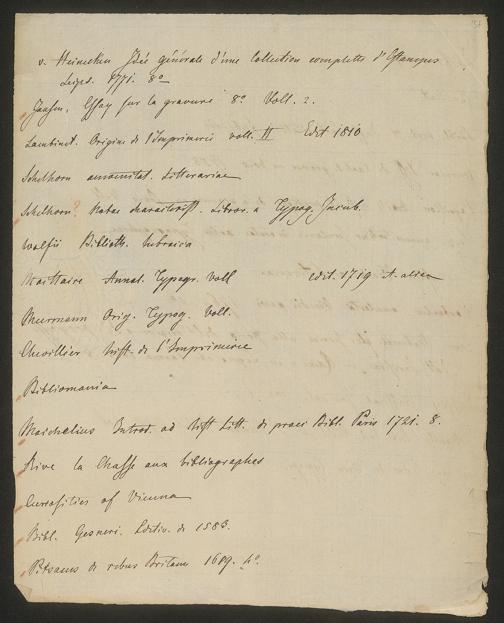 v. Heinecken Idée générale d'une Collection complette d'Estampes
Leipz. 1771. 8o
Jansen, Essay sur la gravure 8o Voll. 2.
Lambinet. Origine de l'Imprimerie voll. II Edit 1810
Schelhorn amoenitat. Litterariae
Schelhorn? Notae characterist. Libror. a Typog. Incub.
Wolfii Biblioth. hebraica
Maittaire Annal. Typogr. Voll edit. 1719 et
Meermann Orig. Typog. Voll.
Chevillier hist. de l'Imprimerie
Bibliomania
Maichelius Introd. ad hist Litt. de praec Bibl. Paris 1721. 8.
Rive la Chasse aux bibliographes
Curosities of Vienna
Bibl. Gesneri. Editio. de 1583.
Pitsaeus de rebus Britann 1619. 4o.